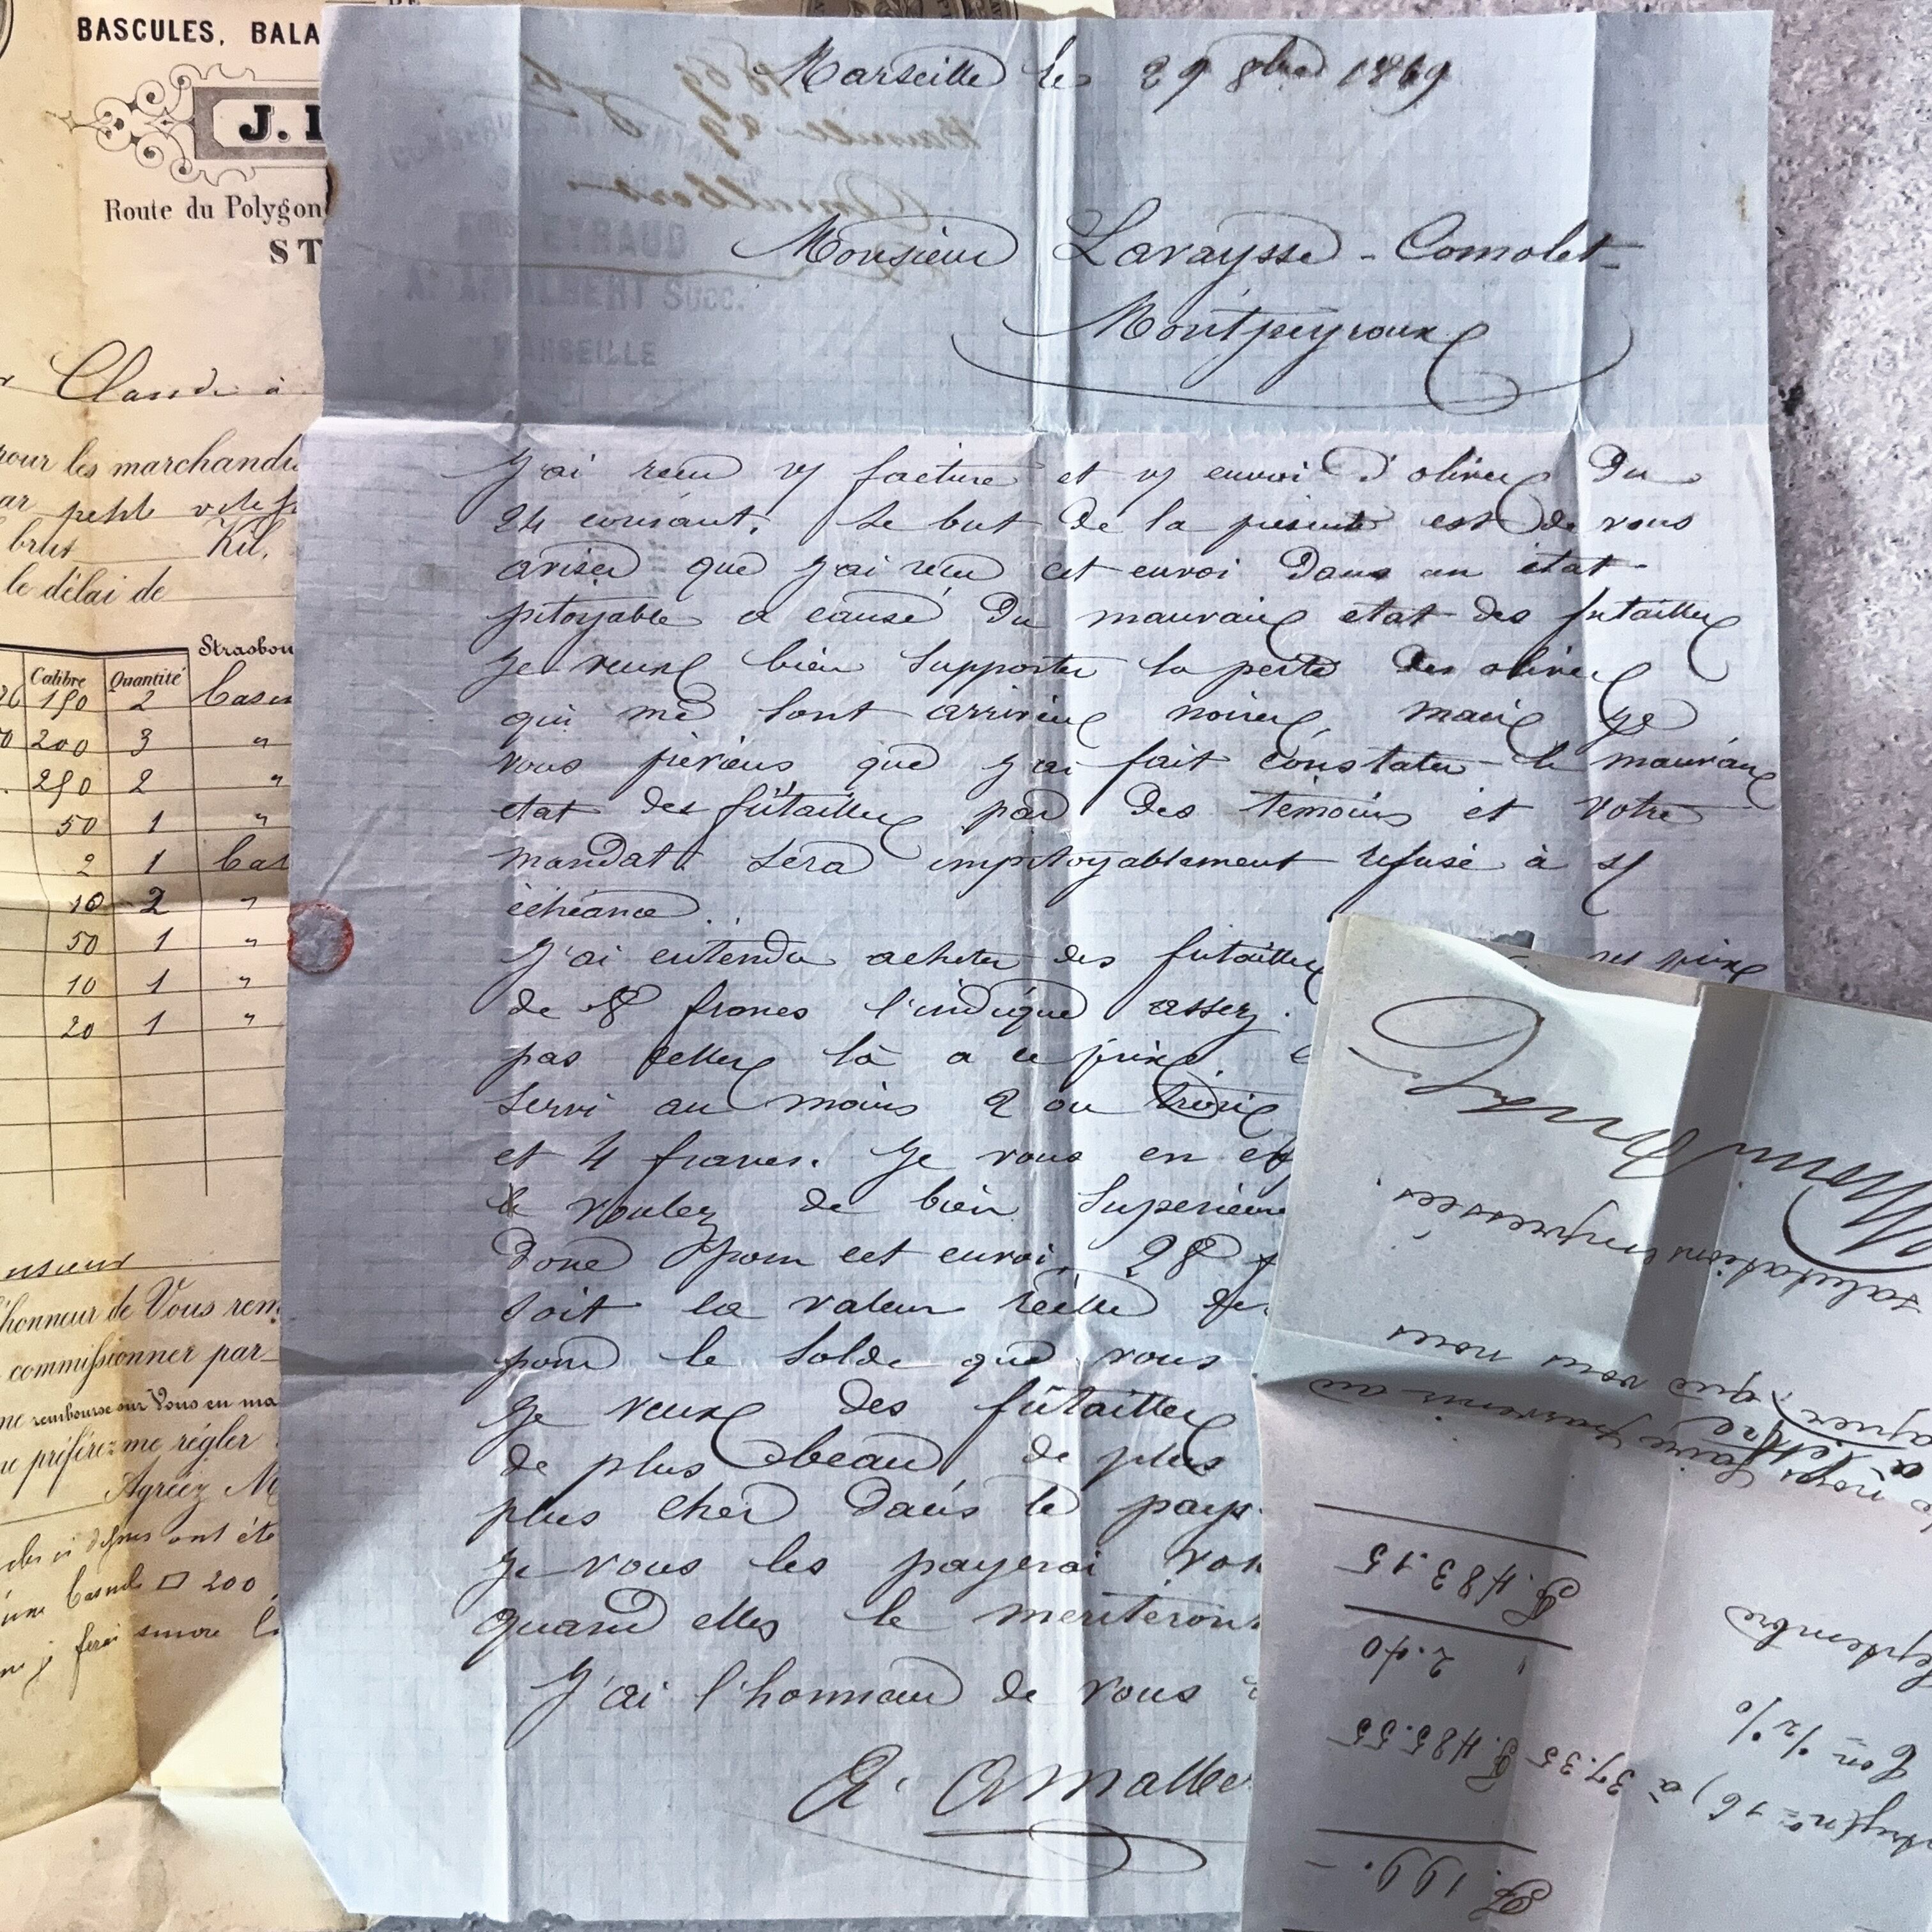 BASCULES, BALA
J.
Route du Polygon
ST
Claude à
pour les marchand
par petite vitesse
brut Kil.
le délai de
Strasbou
Calibre Quantité
150 2
200 3 "
250 2 "
50 1 "
2 1
10 2 "
50 1 "
10 1 "
20 1 "
l'honneur de Vous rem
commissionner par
me rembourse sur Vous en ma
me préférez me régler
Agréez M
ont été
200
ferai encore
Marseille le 29 8bre 1869
Monsieur Lavaysse - Comolet
Montpeyroux
J'ai recu v/ facture et v/ envoi d'olives du
24 courant. Le but de la présente est de vous
aviser que j'ai récu cet envoi dans un état
pitoyable a cause du mauvais etat des futailles
Je veux bien supporter la perte des olives
qui me sont arrivées noires mais je
vous préviens que j'ai fait constater le mauvais
etat des futailles par des temoins et votre
mandat sera impitoyablement refusé à s/
échéance.
J'ai entendu acheter des futailles ses prix
de 8 francs l'indique assez.
pas celles là a ce prix
servi au moins 2 ou trois
et 4 francs. Je vous en
le voulez de bien Superieur
donc pour cet envoi 28 f
soit la valeur réelle de
pour le solde que vous
Je veux des futailles
de plus beau, de plus
plus cher dans le pays
Je vous les payerai
quand elles le meriteron
J'ai l'honneur de vous
A. Amalbe
RAUD
A. AMALBERT SUCC.
MARSEILLE
F. 199.-
à 37.35 F. 485.55
2.40
F. 483.15
septembre
que vous nous
salutations empressées.